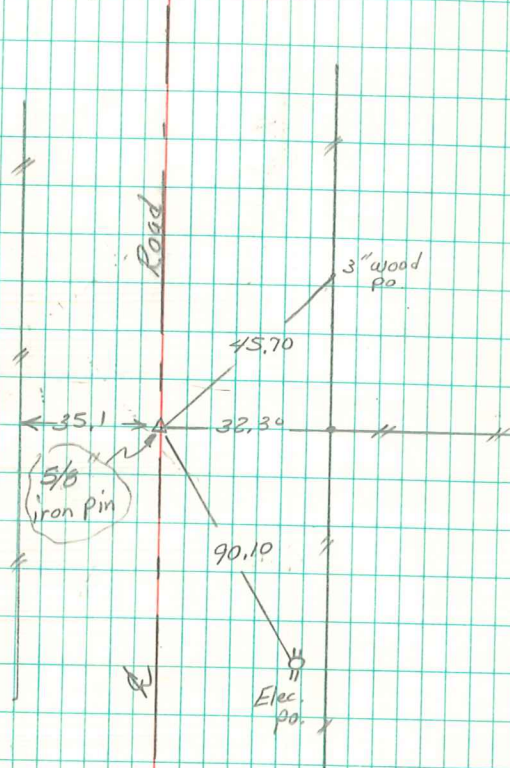 Road
3" wood
po
45.70
35.1
32.30
5/8
iron pin
90.10
℄
Elec.
po.